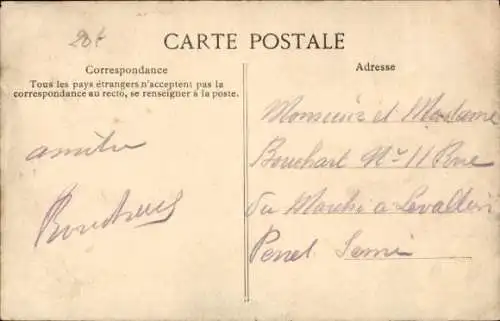 20f
CARTE POSTALE
Correspondance
Tous les pays étrangers n'acceptent pas la
correspondance au recto, se renseigner à la poste.
Adresse
Monsieur et Madame
Bouchart No 11 Rue
du Marché a Levallois
Perret Seine